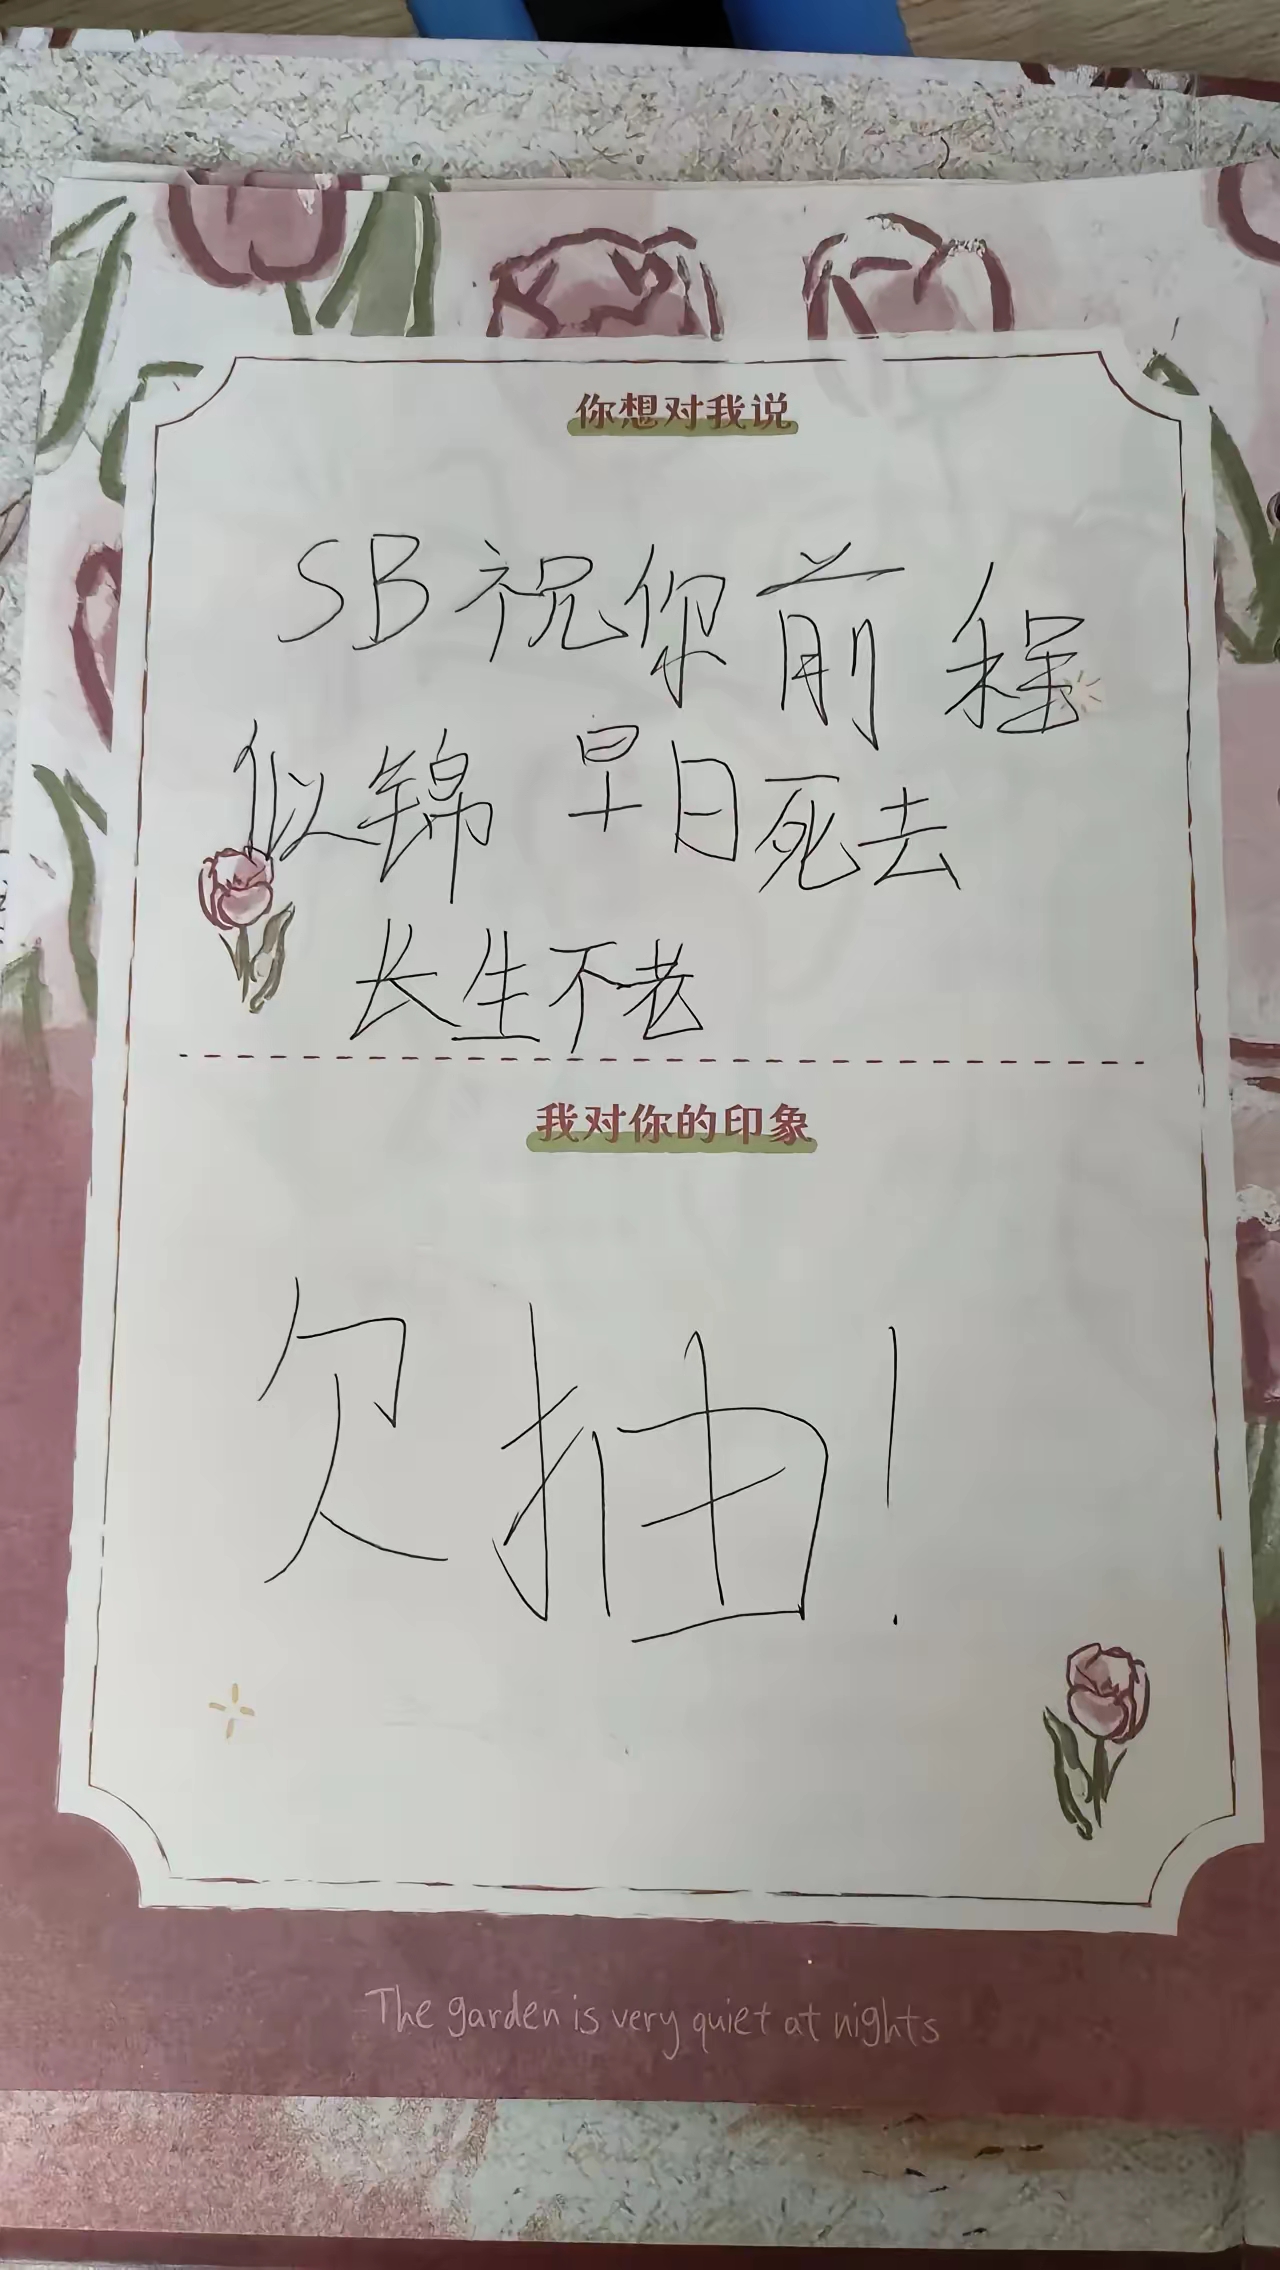 你想对我说
SB祝你前程
似锦 早日死去
长生不老
我对你的印象
欠抽!
The garden is very quiet at nights